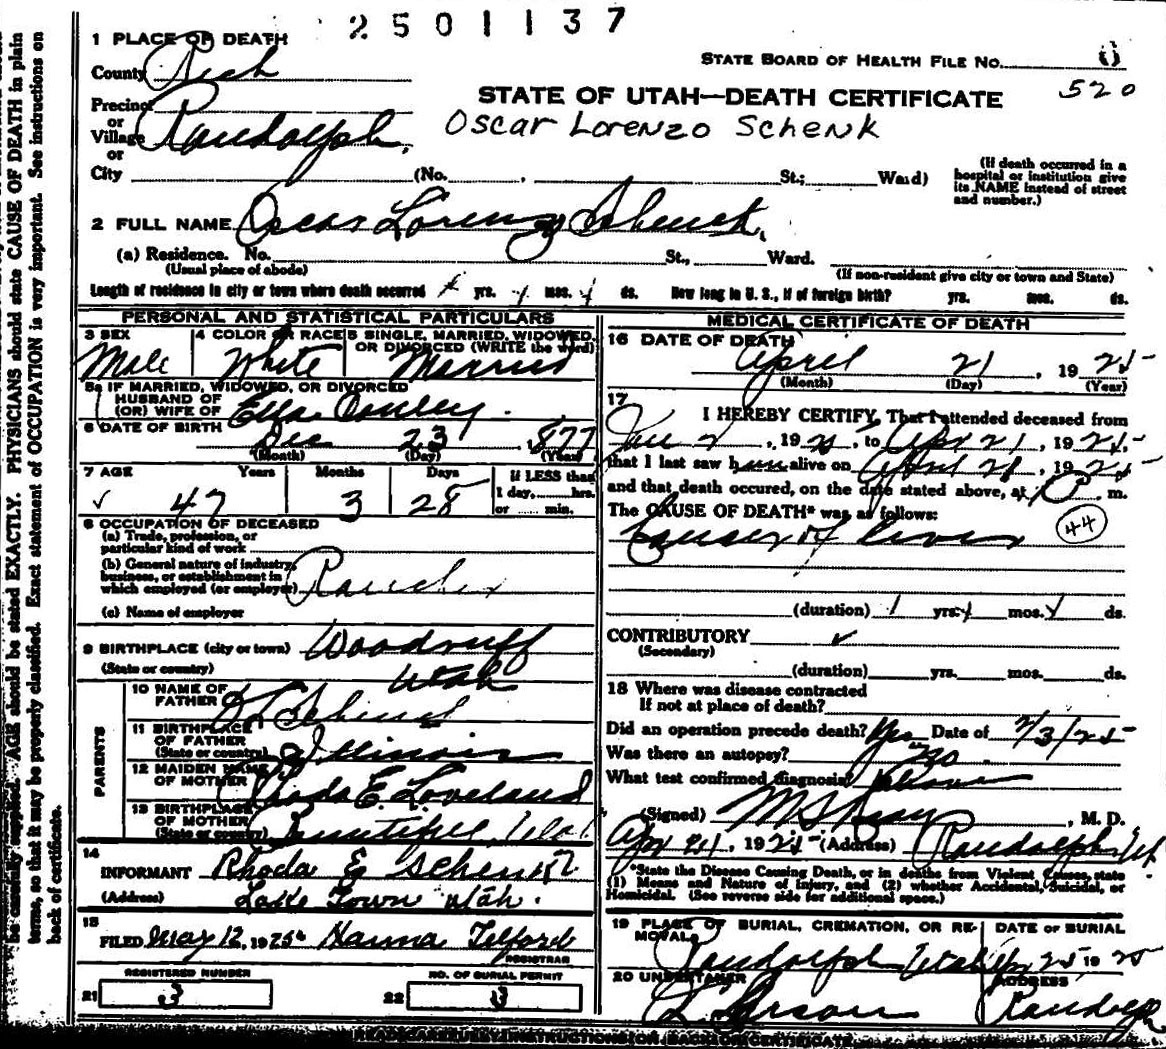 2501137
1 PLACE OF DEATH
County Rich
STATE BOARD OF HEALTH FILE No. 8
520
Precinct
or
Village Randolph.
or
City (No. St.; Ward)
STATE OF UTAH—DEATH CERTIFICATE
Oscar Lorenzo Schenk
(If death occurred in a
hospital or institution give
its NAME instead of street
and number.)
2 FULL NAME Oscar Lorenzo Schenk.
(a) Residence. No. St., Ward.
(Usual place of abode) (If non-resident give city or town and State)
Length of residence in city or town where death occurred yrs. mos. ds. How long in U. S., if of foreign birth? yrs. mos. ds.
PERSONAL AND STATISTICAL PARTICULARS
3 SEX Male
4 COLOR OR RACE White
5 SINGLE, MARRIED, WIDOWED,
OR DIVORCED (WRITE the word)
Married
5a IF MARRIED, WIDOWED, OR DIVORCED
HUSBAND OF
(OR) WIFE OF Ella
6 DATE OF BIRTH Dec 23, 1877
(Month) (Day) (Year)
7 AGE Years Months Days If LESS than
1 day, hrs.
or min.
47 3 28
8 OCCUPATION OF DECEASED
(a) Trade, profession, or
particular kind of work
(b) General nature of industry,
business, or establishment in
which employed (or employer) Rancher
(c) Name of employer
9 BIRTHPLACE (city or town) Woodruff
(State or country) Utah
PARENTS
10 NAME OF
FATHER Schenk
11 BIRTHPLACE
OF FATHER
(State or country) Illinois
12 MAIDEN NAME
OF MOTHER Rhoda E. Loveland
13 BIRTHPLACE
OF MOTHER
(State or country) Bountiful, Utah
14
INFORMANT Rhoda E Schenk
(Address) Lake Town Utah.
15
FILED May 12, 1925 Hanna Telford
REGISTRAR
REGISTERED NUMBER
21 3
NO. OF BURIAL PERMIT
22 8
MEDICAL CERTIFICATE OF DEATH
16 DATE OF DEATH
April 21, 1925
(Month) (Day) (Year)
17
I HEREBY CERTIFY, That I attended deceased from
Jan 2, 1925, to Apr 21, 1925
that I last saw him alive on April 21, 1925
and that death occured, on the date stated above, at m.
The CAUSE OF DEATH* was as follows:
Cancer of liver
44
(duration) 1 yrs. mos. ds.
CONTRIBUTORY
(Secondary)
(duration) yrs. mos. ds.
18 Where was disease contracted
If not at place of death?
Did an operation precede death? Yes Date of 2/3/25
Was there an autopsy? No
What test confirmed diagnosis? Above
(Signed) , M. D.
Apr 21, 1925 (Address) Randolph Ut
*State the Disease Causing Death, or in deaths from Violent Causes, state
(1) Means and Nature of Injury, and (2) whether Accidental, Suicidal, or
Homicidal. (See reverse side for additional space.)
19 PLACE OF BURIAL, CREMATION, OR RE-
MOVAL
DATE OF BURIAL
Randolph Utah Apr 25 1925
20 UNDERTAKER ADDRESS
Randolph
be carefully supplied. AGE should be stated EXACTLY. PHYSICIANS should state CAUSE OF DEATH in plain
terms, so that it may be properly classified. Exact statement of OCCUPATION is very important. See instructions on
back of certificate.